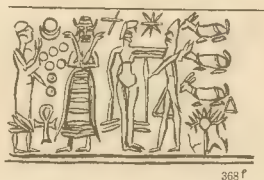 368 f